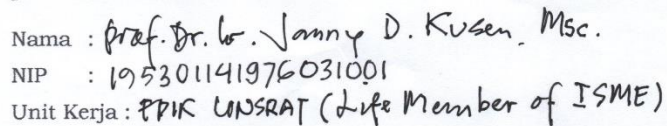 Nama : Prof. Dr. Ir. Janny D. Kusen, Msc.
NIP : 195301141976031001
Unit Kerja : FPIK UNSRAT (Life Member of ISME)